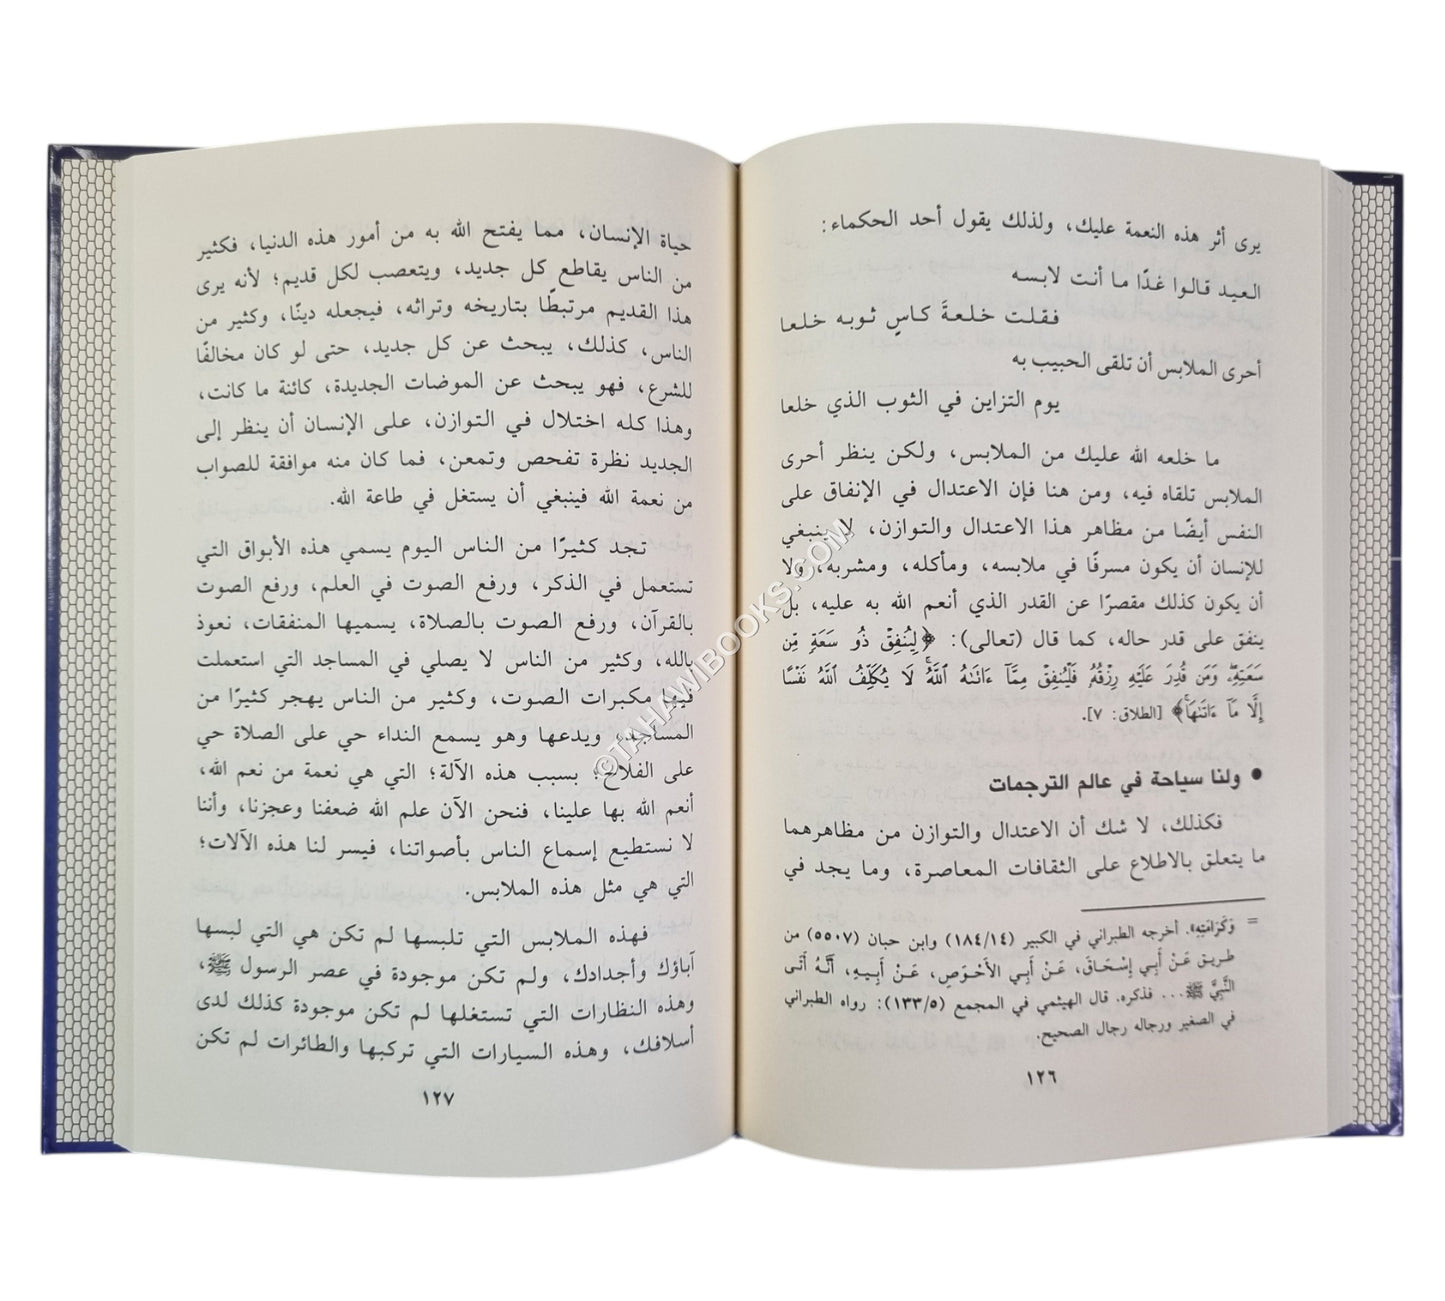 يرى أثر هذه النعمة عليك، ولذلك يقول أحد الحكماء:
العيد قالوا غدًا ما أنت لابسه
فقلت خلعةَ كاسٍ ثوبه خلعا
أحرى الملابس أن تلقى الحبيب به
يوم التزاين في الثوب الذي خلعا
ما خلعه الله عليك من الملابس، ولكن ينظر أحرى
الملابس تلقاه فيه، ومن هنا فإن الاعتدال في الإنفاق على
النفس أيضًا من مظاهر هذا الاعتدال والتوازن، لا ينبغي
للإنسان أن يكون مسرفًا في ملابسه، ومأكله، ومشربه، ولا
أن يكون كذلك مقصرًا عن القدر الذي أنعم الله به عليه، بل
ينفق على قدر حاله، كما قال (تعالى): ﴿لِيُنفِقْ ذُو سَعَةٍ مِّن
سَعَتِهِۦۖ وَمَن قُدِرَ عَلَيْهِ رِزْقُهُۥ فَلْيُنفِقْ مِمَّآ ءَاتَىٰهُ ٱللَّهُۚ لَا يُكَلِّفُ ٱللَّهُ نَفْسًا
إِلَّا مَآ ءَاتَىٰهَاۚ﴾ [الطلاق: ٧].
• ولنا سياحة في عالم الترجمات
فكذلك، لا شك أن الاعتدال والتوازن من مظاهرهما
ما يتعلق بالاطلاع على الثقافات المعاصرة، وما يجد في
= وَكَرَامَتِهِ». أخرجه الطبراني في الكبير (١٨٤/١٤) وابن حبان (٥٥٠٧) من
طريق عَنْ أَبِي إِسْحَاقَ، عَنْ أَبِي الأَحْوَصِ، عَنْ أَبِيهِ، أَنَّهُ أَتَى
النَّبِيَّ ﷺ... فذكره. قال الهيثمي في المجمع (١٣٣/٥): رواه الطبراني
في الصغير ورجاله رجال الصحيح.
١٢٦
حياة الإنسان، مما يفتح الله به من أمور هذه الدنيا، فكثير
من الناس يقاطع كل جديد، ويتعصب لكل قديم؛ لأنه يرى
هذا القديم مرتبطًا بتاريخه وتراثه، فيجعله دينًا، وكثير من
الناس، كذلك، يبحث عن كل جديد، حتى لو كان مخالفًا
للشرع، فهو يبحث عن الموضات الجديدة، كائنة ما كانت،
وهذا كله اختلال في التوازن، على الإنسان أن ينظر إلى
الجديد نظرة تفحص وتمعن، فما كان منه موافقة للصواب
من نعمة الله فينبغي أن يستغل في طاعة الله.
تجد كثيرًا من الناس اليوم يسمي هذه الأبواق التي
تستعمل في الذكر، ورفع الصوت في العلم، ورفع الصوت
بالقرآن، ورفع الصوت بالصلاة، يسميها المنفقات، نعوذ
بالله، وكثير من الناس لا يصلي في المساجد التي استعملت
فيها مكبرات الصوت، وكثير من الناس يهجر كثيرًا من
المساجد، ويدعها وهو يسمع النداء حي على الصلاة حي
على الفلاح؛ بسبب هذه الآلة؛ التي هي نعمة من نعم الله،
أنعم الله بها علينا، فنحن الآن علم الله ضعفنا وعجزنا، وأننا
لا نستطيع إسماع الناس بأصواتنا، فيسر لنا هذه الآلات؛
التي هي مثل هذه الملابس.
فهذه الملابس التي تلبسها لم تكن هي التي لبسها
آباؤك وأجدادك، ولم تكن موجودة في عصر الرسول ﷺ،
وهذه النظارات التي تستغلها لم تكن موجودة كذلك لدى
أسلافك، وهذه السيارات التي تركبها والطائرات لم تكن
١٢٧
©TAHAWIBOOKS.COM